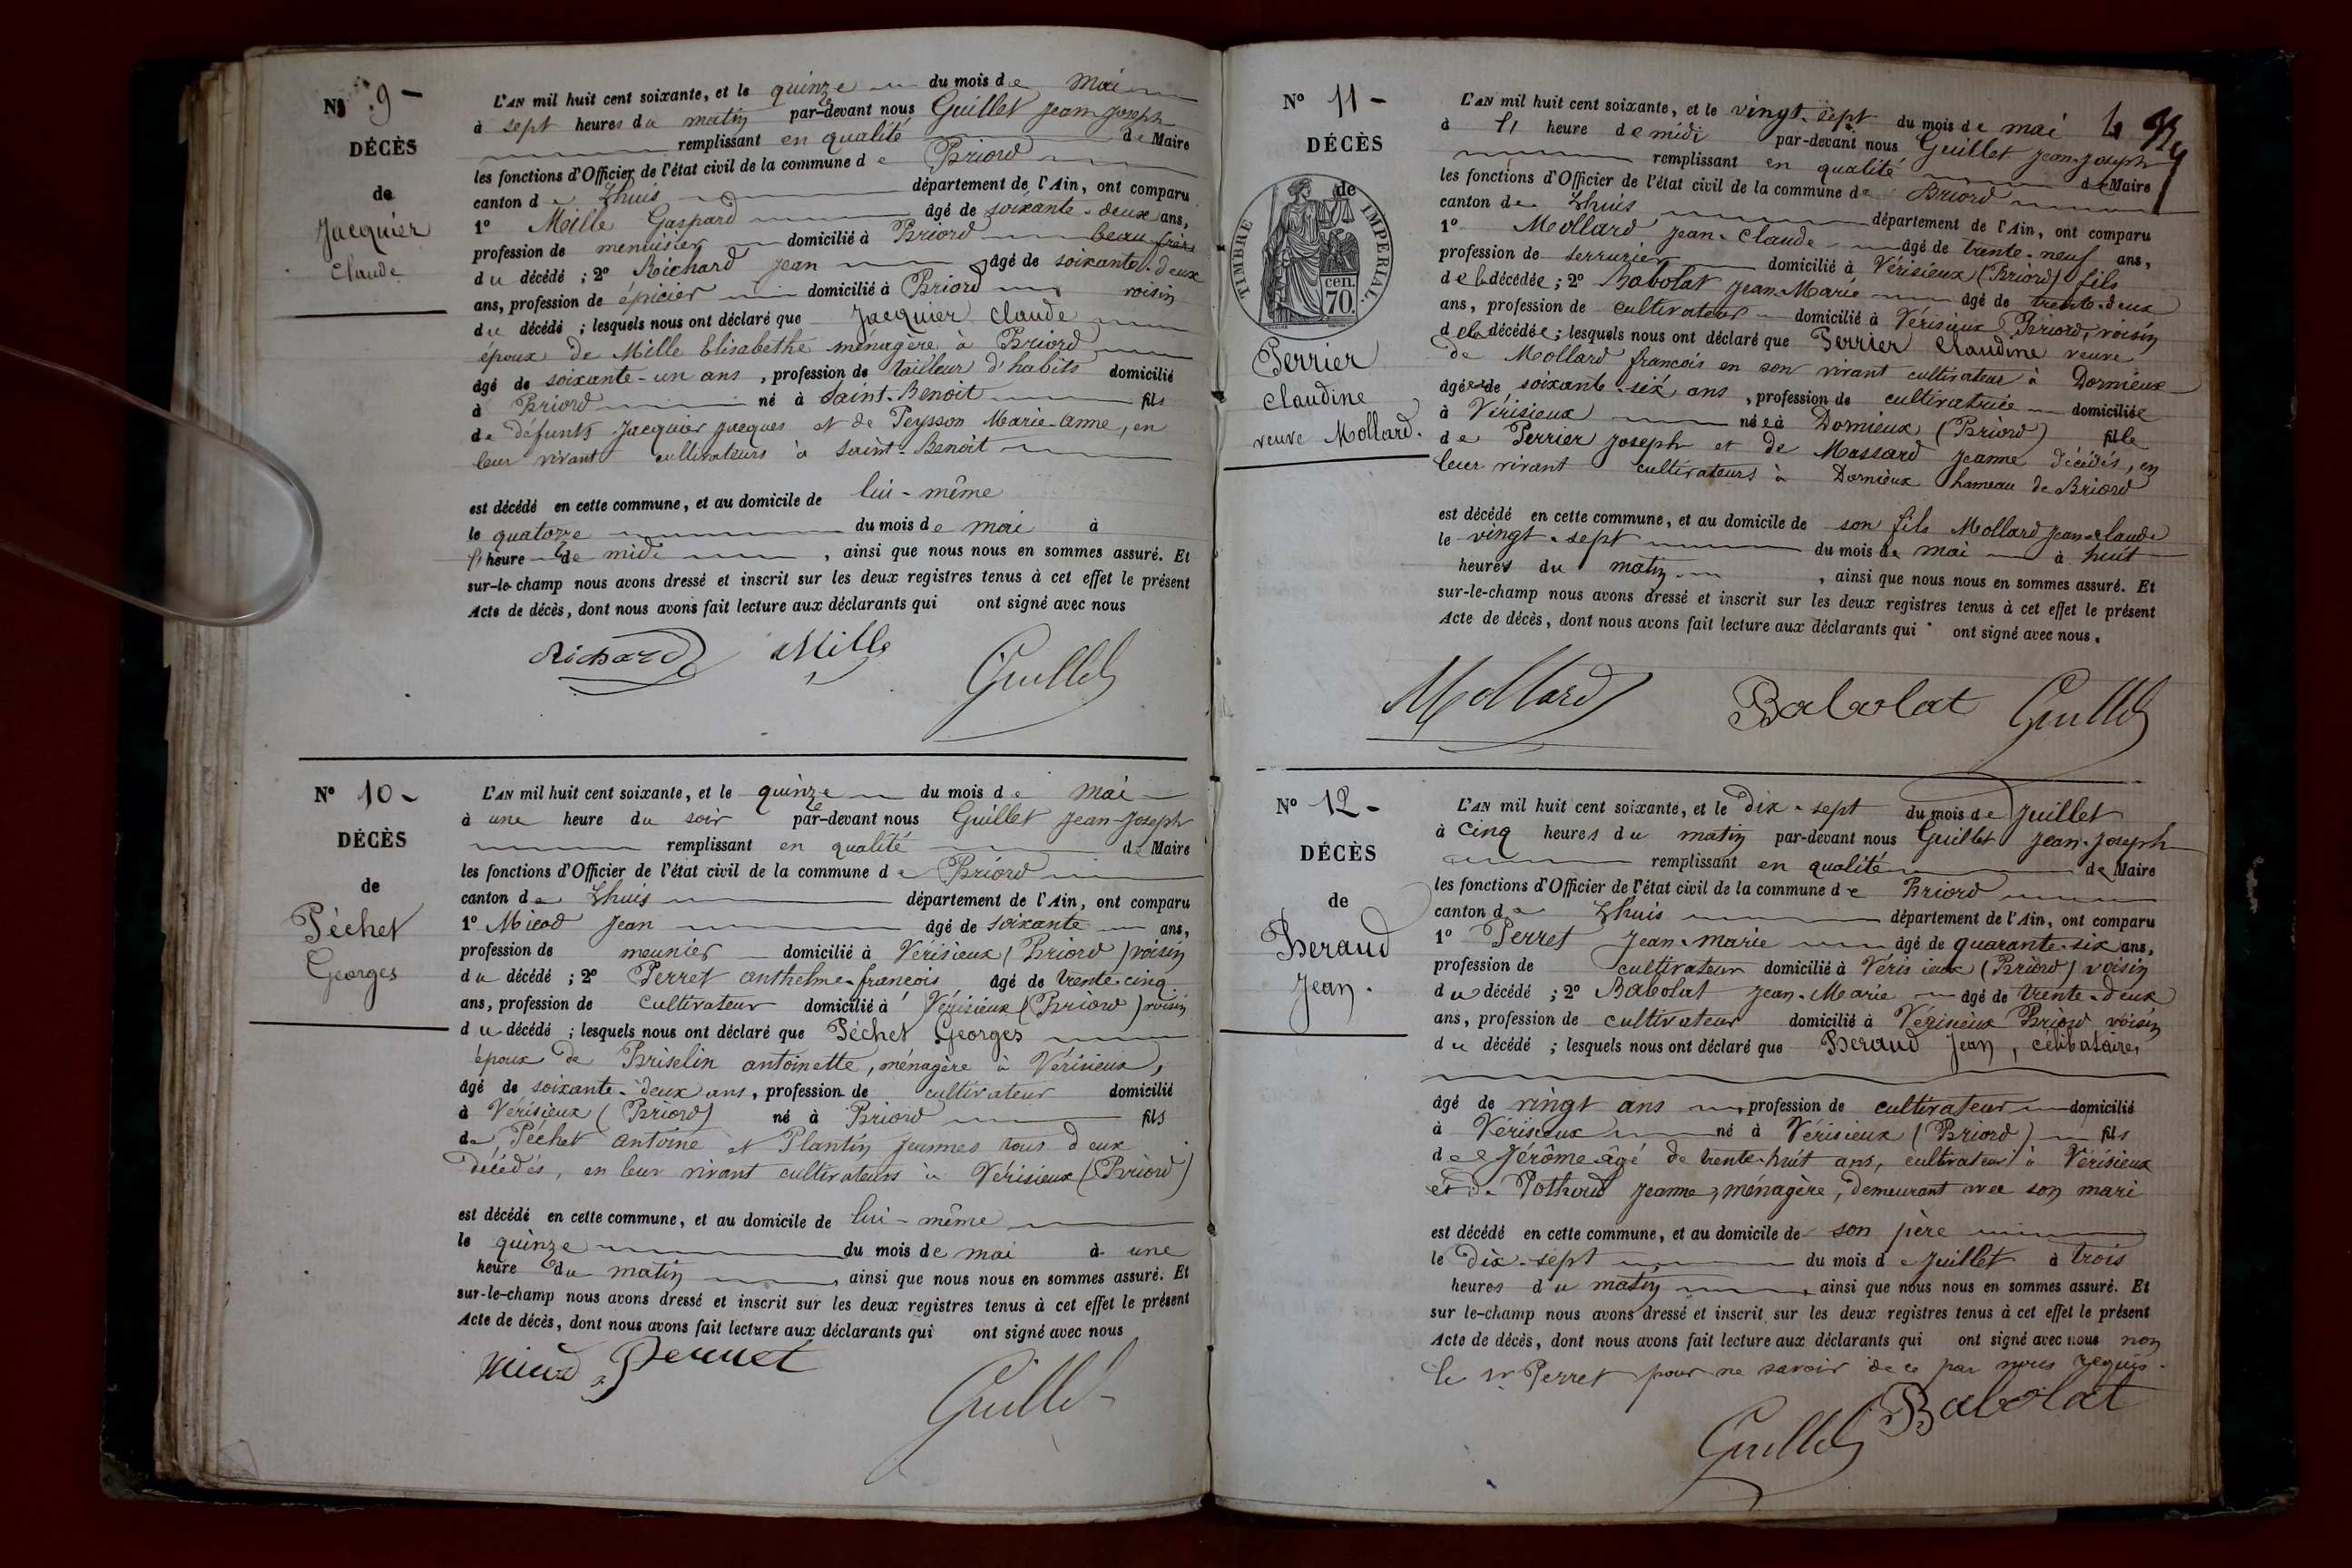 N° 9 -
DÉCÈS
de
Jacquier
Claude
L'AN mil huit cent soixante, et le quinze du mois de Mai
à sept heures du matin par-devant nous Guillet Jean-Joseph
remplissant en qualité de Maire
les fonctions d'Officier de l'état civil de la commune de Briord
canton de Lhuis département de l'Ain, ont comparu
1° Mille Gaspard âgé de soixante-deux ans,
profession de menuisier domicilié à Briord beau frère
du décédé ; 2° Richard Jean âgé de soixante-deux
ans, profession de épicier domicilié à Briord voisin
du décédé ; lesquels nous ont déclaré que Jacquier Claude
époux de Mille Elisabethe ménagère à Briord
âgé de soixante-un ans, profession de tailleur d'habits domicilié
à Briord né à Saint-Benoit fils
de défunts Jacquier Jacques et de Peysson Marie-Anne, en
leur vivant cultivateurs à Saint-Benoit
est décédé en cette commune, et au domicile de lui-même
le quatorze du mois de mai à
heure de midi , ainsi que nous nous en sommes assuré. Et
sur-le-champ nous avons dressé et inscrit sur les deux registres tenus à cet effet le présent
Acte de décès, dont nous avons fait lecture aux déclarants qui ont signé avec nous
Richard Mille Guillet
N° 10 -
DÉCÈS
de
Péchet
Georges
L'AN mil huit cent soixante, et le quinze du mois de mai
à une heure du soir par-devant nous Guillet Jean-Joseph
remplissant en qualité de Maire
les fonctions d'Officier de l'état civil de la commune de Briord
canton de Lhuis département de l'Ain, ont comparu
1° Micod Jean âgé de soixante ans,
profession de meunier domicilié à Vérisieux (Briord) voisin
du décédé ; 2° Perret anthelme-françois âgé de trente cinq
ans, profession de cultivateur domicilié à Vérisieux (Briord) voisin
du décédé ; lesquels nous ont déclaré que Péchet Georges
époux de Briselin antoinette, ménagère à Vérisieux,
âgé de soixante-deux ans, profession de cultivateur domicilié
à Vérisieux (Briord) né à Briord fils
de Péchet Antoine et Plantin Jeannes tous deux
décédés, en leur vivant cultivateurs à Vérisieux (Briord)
est décédé en cette commune, et au domicile de lui-même
le quinze du mois de mai à une
heure du matin , ainsi que nous nous en sommes assuré. Et
sur-le-champ nous avons dressé et inscrit sur les deux registres tenus à cet effet le présent
Acte de décès, dont nous avons fait lecture aux déclarants qui ont signé avec nous
Micod Perret
Guillet
N° 11 -
DÉCÈS
de
TIMBRE IMPERIAL
cen.
70.
Perrier
Claudine
veuve Mollard.
L'AN mil huit cent soixante, et le vingt-sept du mois de mai
à heure de midi par-devant nous Guillet Jean-Joseph
remplissant en qualité de Maire
les fonctions d'Officier de l'état civil de la commune de Briord
canton de Lhuis département de l'Ain, ont comparu
1° Mollard Jean-Claude âgé de trente-neuf ans,
profession de serrurier domicilié à Vérisieux (Briord) fils
de la décédée ; 2° Babolat Jean-Marie âgé de trente-deux
ans, profession de cultivateur domicilié à Vérisieux Briord, voisin
de la décédée ; lesquels nous ont déclaré que Perrier Claudine veuve
de Mollard francois en son vivant cultivateur à Dornieux
âgée de soixante-six ans, profession de cultivatrice domiciliée
à Vérisieux née à Dornieux (Briord) fille
de Perrier Joseph et de Massard Jeanne décédés, en
leur vivant cultivateurs à Dornieux hameau de Briord
est décédé en cette commune, et au domicile de son fils Mollard Jean-Claude
le vingt-sept du mois de mai à huit
heures du matin , ainsi que nous nous en sommes assuré. Et
sur-le-champ nous avons dressé et inscrit sur les deux registres tenus à cet effet le présent
Acte de décès, dont nous avons fait lecture aux déclarants qui ont signé avec nous.
Mollard Babolat Guillet
N° 12 -
DÉCÈS
de
Beraud
Jean.
L'AN mil huit cent soixante, et le Dix-sept du mois de Juillet
à cinq heures du matin par-devant nous Guillet Jean-Joseph
remplissant en qualité de Maire
les fonctions d'Officier de l'état civil de la commune de Briord
canton de Lhuis département de l'Ain, ont comparu
1° Perret Jean-marie âgé de quarante-six ans,
profession de cultivateur domicilié à Vérisieux (Briord) voisin
du décédé ; 2° Babolat Jean-Marie âgé de trente-deux
ans, profession de cultivateur domicilié à Vérisieux Briord voisin
du décédé ; lesquels nous ont déclaré que Beraud Jean, célibataire,
âgé de vingt ans, profession de cultivateur domicilié
à Vérisieux né à Vérisieux (Briord) fils
de Jérôme âgé de trente-huit ans, cultivateur à Vérisieux
et de Pothoud Jeanne, ménagère, demeurant avec son mari
est décédé en cette commune, et au domicile de son père
le dix-sept du mois de Juillet à trois
heures du matin , ainsi que nous nous en sommes assuré. Et
sur le-champ nous avons dressé et inscrit sur les deux registres tenus à cet effet le présent
Acte de décès, dont nous avons fait lecture aux déclarants qui ont signé avec nous non
le sr Perret pour ne savoir de ce par nous requis.
Guillet Babolat